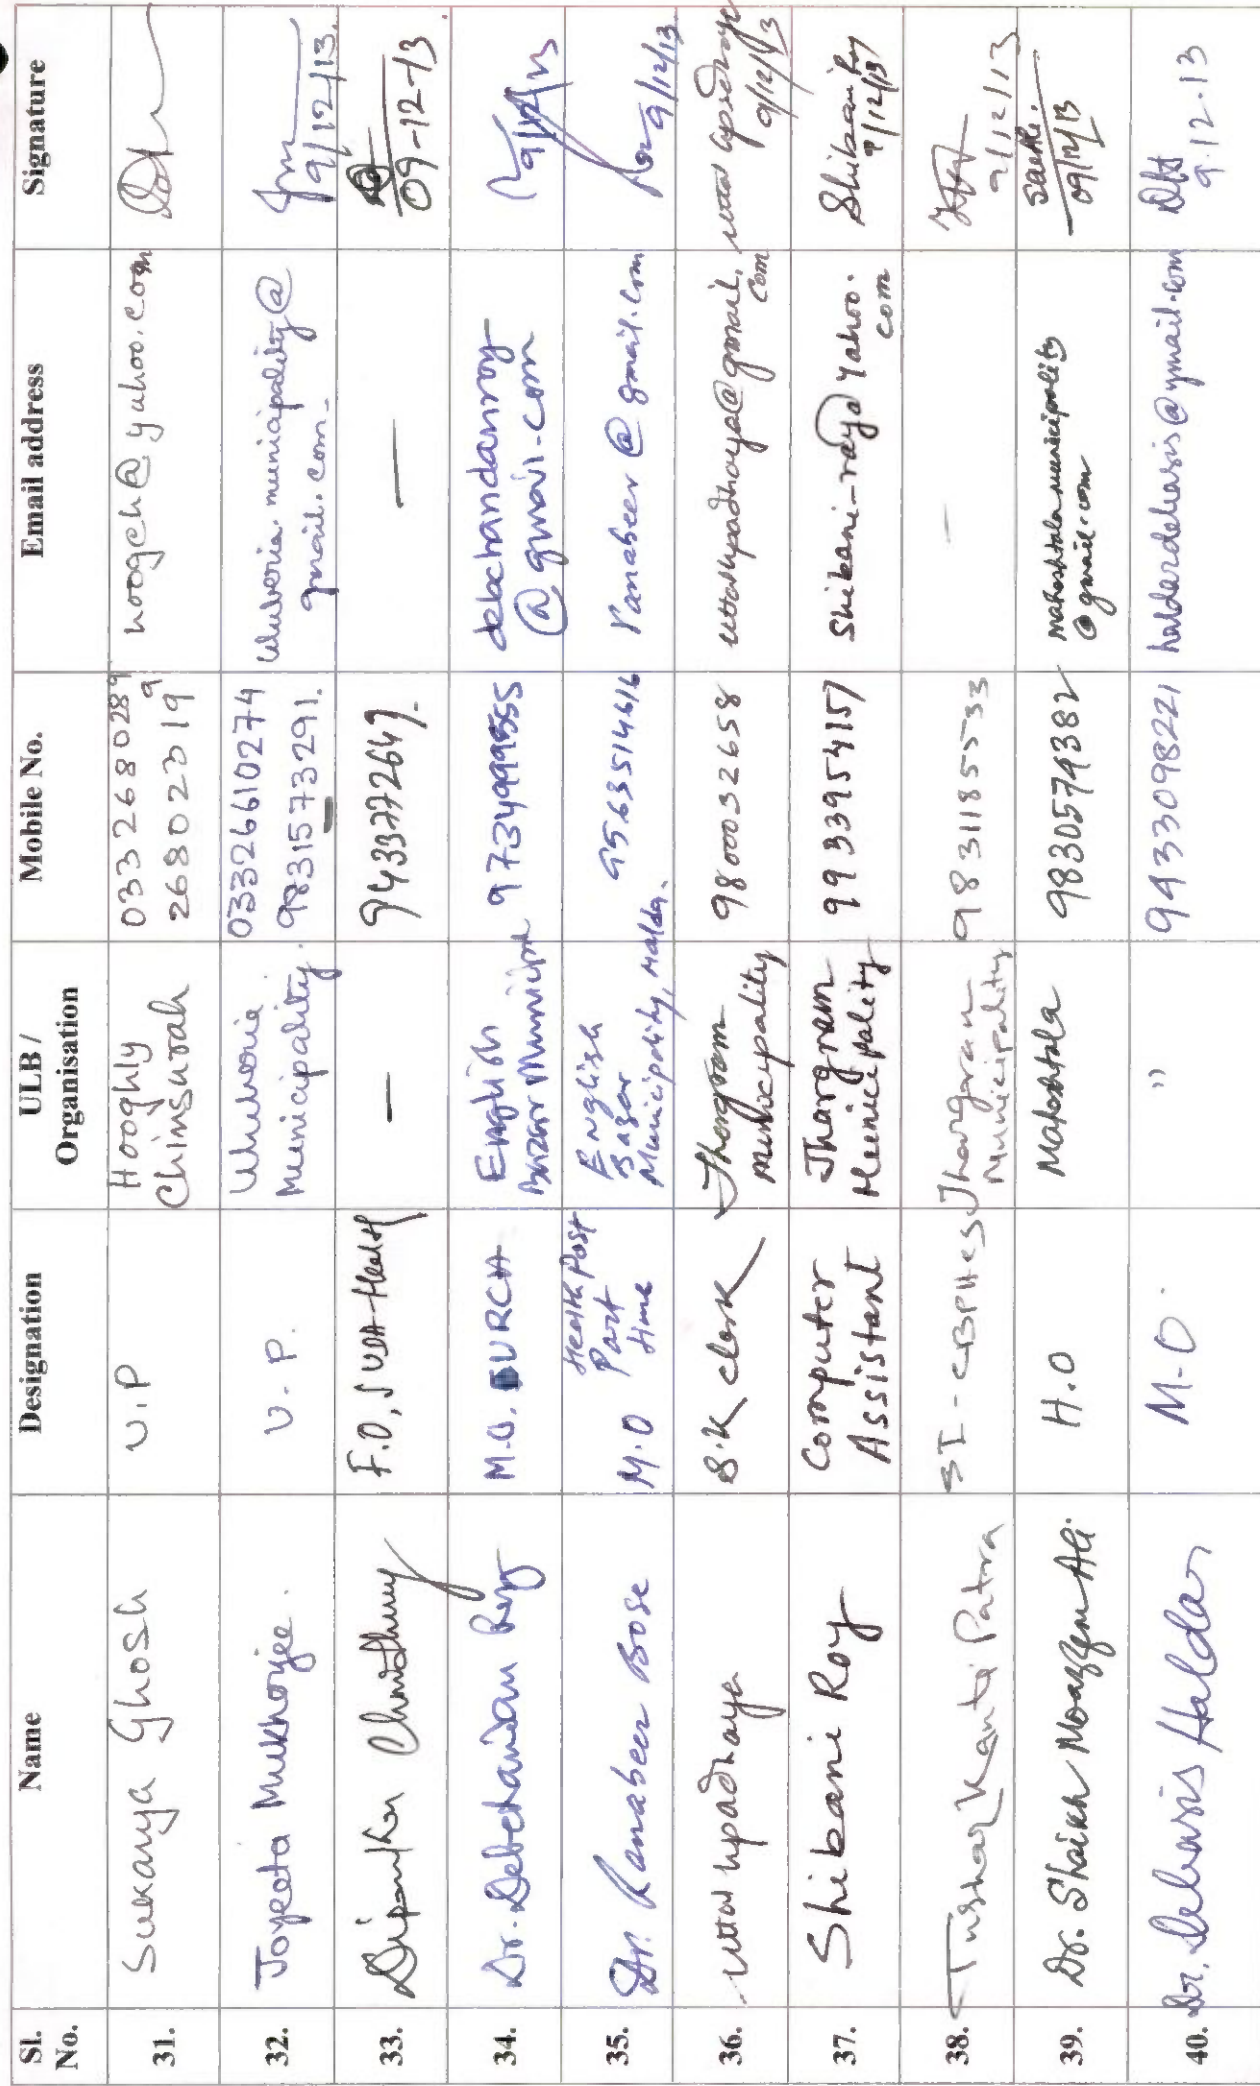 Sl. No. Name Designation ULB / Organisation Mobile No. Email address Signature
31. Sukanya Ghosh V.P Hooghly Chinsurah 03326802899 26802319 hoogch@yahoo.com
32. Joyeeta Mukherjee. V.P. Uluberia Municipality. 03326610274 9831573291. uluberia.municipality@gmail.com 9/12/13.
33. Dipankar Chowdhury F.O, SUDA-Health — 9433772649. — 09-12-13
34. Dr. Debchandan Roy M.O. EURCH English Bazar Municipal 9734999555 debchandanroy@gmail.com 9/12/13
35. Dr. Ranabeer Bose M.O Health Post Part time English Bazar Municipality, Malda. 9563514616 ranabeer@gmail.com 9/12/13
36. Uttal Upadhaya S.K clerk Jhargram Municipality 9800032658 uttalupadhaya@gmail.com 9/12/13
37. Shibani Roy Computer Assistant Jhargram Municipality 9933954157 Shibani-ray@yahoo.com Shibani Roy 9/12/13
38. Tushar Kanti Patra SI-CBPHCS Jhargram Municipality 9831185533 - 9/12/13
39. Dr. Shaikh Moazzem Ali. H.O Maheshtala 9830574382 maheshtalamunicipality@gmail.com 09/12/13
40. Dr. Debasis Halder M.O. " 9433098221 halderdebasis@ymail.com 9.12.13